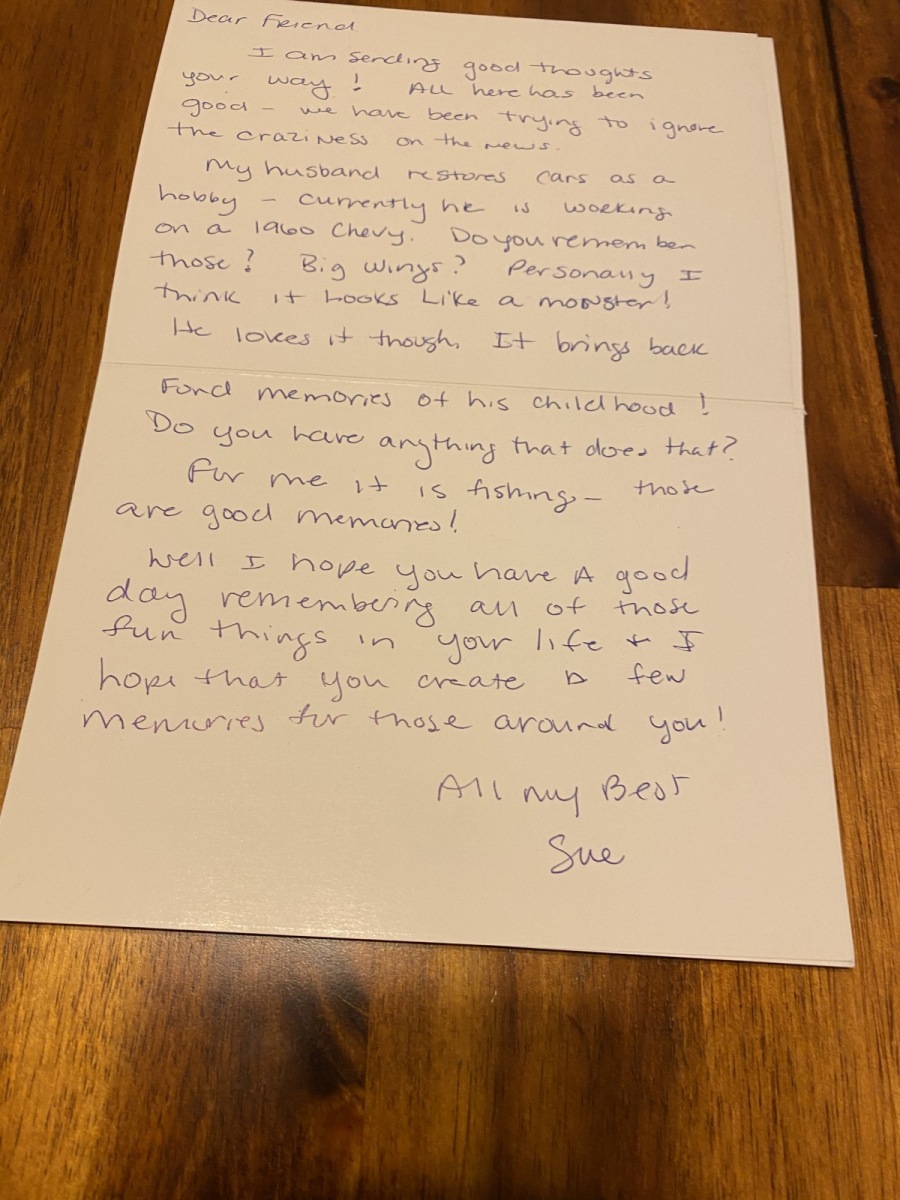 Dear Friend
I am sending good thoughts
your way! All here has been
good - we have been trying to ignore
the craziness on the news.
My husband restores cars as a
hobby - currently he is working
on a 1960 Chevy. Do you remember
those? Big wings? Personally I
think it looks like a monster!
He loves it though. It brings back
Fond memories of his childhood!
Do you have anything that does that?
For me it is fishing - those
are good memories!
Well I hope you have a good
day remembering all of those
fun things in your life + I
hope that you create a few
memories for those around you!
All my Best
Sue